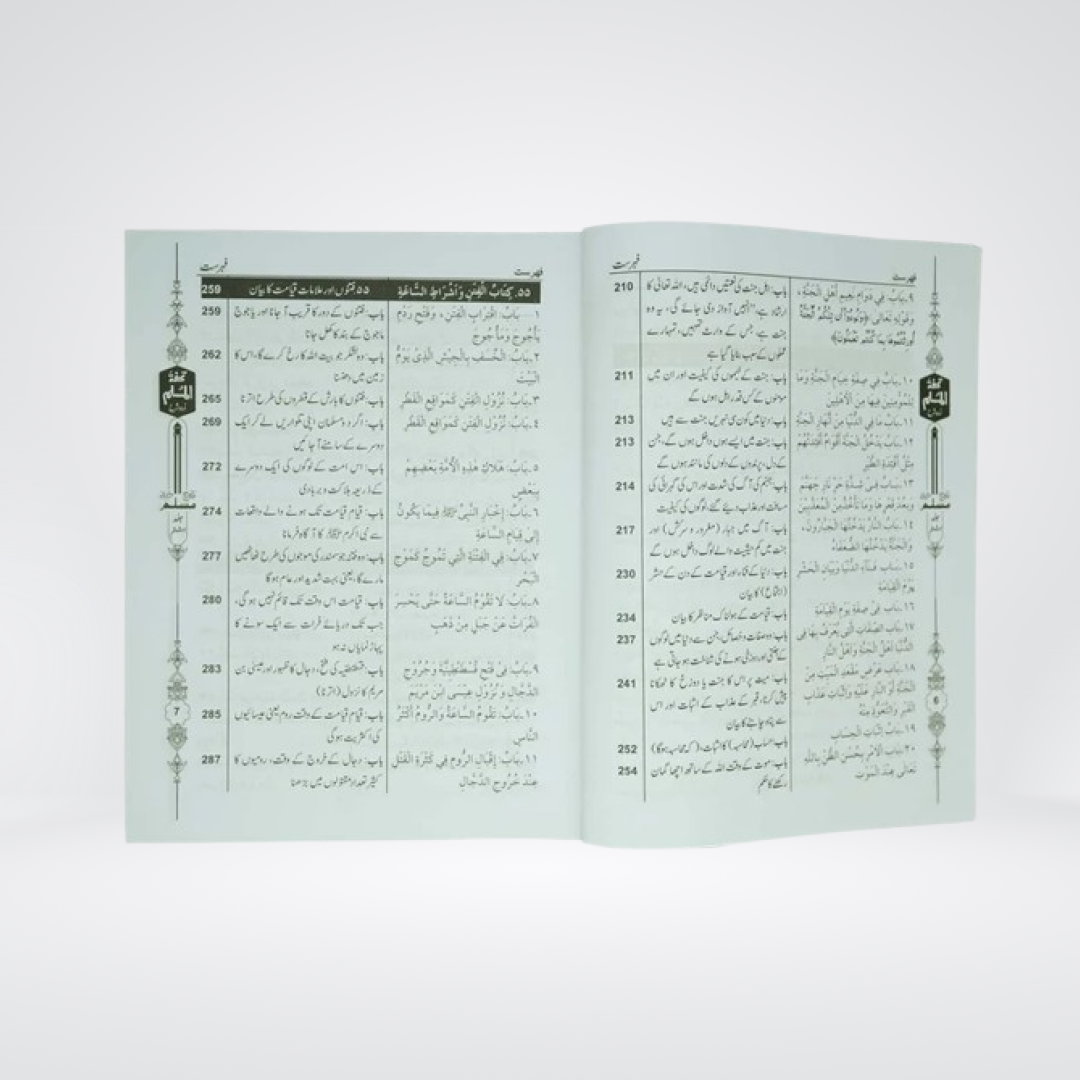 فہرست
فہرست
٩۔ بَابٌ: فِي دَوَامِ نَعِيمِ أَهْلِ الْجَنَّةِ،
وَقَوْلِهِ تَعَالَى ﴿وَنُودُوٓا أَن تِلْكُمُ الْجَنَّةُ
أُورِثْتُمُوهَا بِمَا كُنتُمْ تَعْمَلُونَ﴾
باب: اہل جنت کی نعمتیں دائمی ہیں، اللہ تعالیٰ کا
ارشاد ہے، "انہیں آواز دی جائے گی، یہ وہ
جنت ہے، جس کے وارث تمہیں، تمہارے
عملوں کے سبب بنایا گیا ہے
210
١٠۔ بَابٌ: فِي صِفَةِ خِيَامِ الْجَنَّةِ وَمَا
لِلْمُؤْمِنِينَ فِيهَا مِنَ الْأَهْلِينَ
باب: جنت کے خیموں کی کیفیت اور ان میں
مومنوں کے کس قدر اہل ہوں گے
211
١١۔ بَابُ مَا فِي الدُّنْيَا مِنْ أَنْهَارِ الْجَنَّةِ
باب: دنیا میں کون سی نہریں جنت سے ہیں
213
١٢۔ بَابٌ: يَدْخُلُ الْجَنَّةَ أَقْوَامٌ أَفْئِدَتُهُمْ
مِثْلُ أَفْئِدَةِ الطَّيْرِ
باب: جنت میں ایسے لوگ داخل ہوں گے، جن
کے دل، پرندوں کے دلوں کی مانند ہوں گے
213
١٣۔ بَابٌ: فِي شِدَّةِ حَرِّ نَارِ جَهَنَّمَ
وَبُعْدِ قَعْرِهَا وَمَا تَأْخُذُ مِنَ الْمُعَذَّبِينَ
باب: جہنم کی آگ کی شدت اور اس کی گہرائی کی
مسافت اور عذاب دیے گئے، لوگوں کی کیفیت
214
١٤۔ بَابٌ: النَّارُ يَدْخُلُهَا الْجَبَّارُونَ،
وَالْجَنَّةُ يَدْخُلُهَا الضُّعَفَاءُ
باب: آگ میں جبار (مغرور و سرکش) اور
جنت میں کم حیثیت والے لوگ داخل ہوں گے
217
١٥۔ بَابٌ: فَنَاءِ الدُّنْيَا وَبَيَانِ الْحَشْرِ
يَوْمَ الْقِيَامَةِ
باب: دنیا کے فناء اور قیامت کے دن کے حشر
(اجتماع) کا بیان
230
١٦۔ بَابٌ: فِي صِفَةِ يَوْمِ الْقِيَامَةِ
باب: قیامت کے ہولناک مناظر کا بیان
234
١٧۔ بَابُ الصِّفَاتِ الَّتِي يُعْرَفُ بِهَا فِي
الدُّنْيَا أَهْلُ الْجَنَّةِ وَأَهْلُ النَّارِ
باب: وہ صفات و خصائل، جن سے دنیا میں لوگوں
کے جنتی اور دوزخی ہونے کی شناخت ہو جاتی ہے
237
١٨۔ بَابُ عَرْضِ مَقْعَدِ الْمَيِّتِ مِنَ
الْجَنَّةِ أَوِ النَّارِ عَلَيْهِ وَإِثْبَاتِ عَذَابِ
الْقَبْرِ وَالتَّعَوُّذِ مِنْهُ
باب: میت پر اس کا جنت یا دوزخ کا ٹھکانا
پیش کرنا، قبر کے عذاب کے اثبات اور اس
سے پناہ چاہنے کا بیان
241
١٩۔ بَابُ إِثْبَاتِ الْحِسَابِ
باب: حساب (محاسبہ) کا اثبات، (کہ محاسبہ ہوگا)
252
٢٠۔ بَابُ الْأَمْرِ بِحُسْنِ الظَّنِّ بِاللَّهِ
تَعَالَى عِنْدَ الْمَوْتِ
باب: موت کے وقت اللہ کے ساتھ اچھا گمان
رکھنے کا حکم
254
تحفۃ
المسلم
مسلم
جلد
6
فہرست
فہرست
٥٥۔ كِتَابُ الْفِتَنِ وَأَشْرَاطِ السَّاعَةِ
٥٥ فتنوں اور علامات قیامت کا بیان
259
١۔ بَابُ: اقْتِرَابِ الْفِتَنِ، وَفَتْحِ رَدْمِ
يَأْجُوجَ وَمَأْجُوجَ
باب: فتنوں کے دور کا قریب آ جانا اور یاجوج
ماجوج کے بند کا کھل جانا
259
٢۔ بَابُ: الْخَسْفِ بِالْجَيْشِ الَّذِي يَؤُمُّ
الْبَيْتَ
باب: وہ لشکر جو بیت اللہ کا رخ کرے گا، اس کا
زمین میں دھنسنا
262
٣۔ بَابُ: نُزُولِ الْفِتَنِ كَمَوَاقِعِ الْقَطْرِ
باب: فتنوں کا بارش کے قطروں کی طرح اترنا
265
٤۔ بَابُ: نُزُولِ الْفِتَنِ كَمَوَاقِعِ الْقَطْرِ
باب: اگر دو مسلمان اپنی تلواریں لے کر ایک
دوسرے کے سامنے آ جائیں
269
٥۔ بَابُ: هَلَاكِ هَذِهِ الْأُمَّةِ بَعْضِهِمْ
بِبَعْضٍ
باب: اس امت کے لوگوں کی ایک دوسرے
کے ذریعہ ہلاکت و بربادی
272
٦۔ بَابُ: إِخْبَارِ النَّبِيِّ ﷺ فِيمَا يَكُونُ
إِلَى قِيَامِ السَّاعَةِ
باب: قیام قیامت تک ہونے والے واقعات
سے نبی اکرم ﷺ کا آگاہ فرمانا
274
٧۔ بَابُ: فِي الْفِتْنَةِ الَّتِي تَمُوجُ كَمَوْجِ
الْبَحْرِ
باب: وہ فتنہ جو سمندر کی موجوں کی طرح ٹھاٹھیں
مارے گا، یعنی بہت شدید اور عام ہوگا
277
٨۔ بَابُ: لَا تَقُومُ السَّاعَةُ حَتَّى يَحْسِرَ
الْفُرَاتُ عَنْ جَبَلٍ مِنْ ذَهَبٍ
باب: قیامت اس وقت تک قائم نہیں ہوگی،
جب تک دریائے فرات سے ایک سونے کا
پہاڑ نمایاں نہ ہو
280
٩۔ بَابُ: فِي فَتْحِ قُسْطَنْطِينِيَّةَ وَخُرُوجِ
الدَّجَّالِ وَنُزُولِ عِيسَى ابْنِ مَرْيَمَ
باب: قسطنطنیہ کی فتح، دجال کا ظہور اور عیسیٰ بن
مریم کا نزول (اترنا)
283
١٠۔ بَابُ: تَقُومُ السَّاعَةُ وَالرُّومُ أَكْثَرُ
النَّاسِ
باب: قیام قیامت کے وقت روم یعنی عیسائیوں
کی اکثریت ہوگی
285
١١۔ بَابُ: إِقْبَالِ الرُّومِ فِي كَثْرَةِ الْقَتْلِ
عِنْدَ خُرُوجِ الدَّجَّالِ
باب: دجال کے خروج کے وقت، رومیوں کا
کثیر تعداد مقتولوں میں بڑھنا
287
تحفۃ
المسلم
مسلم
جلد
7